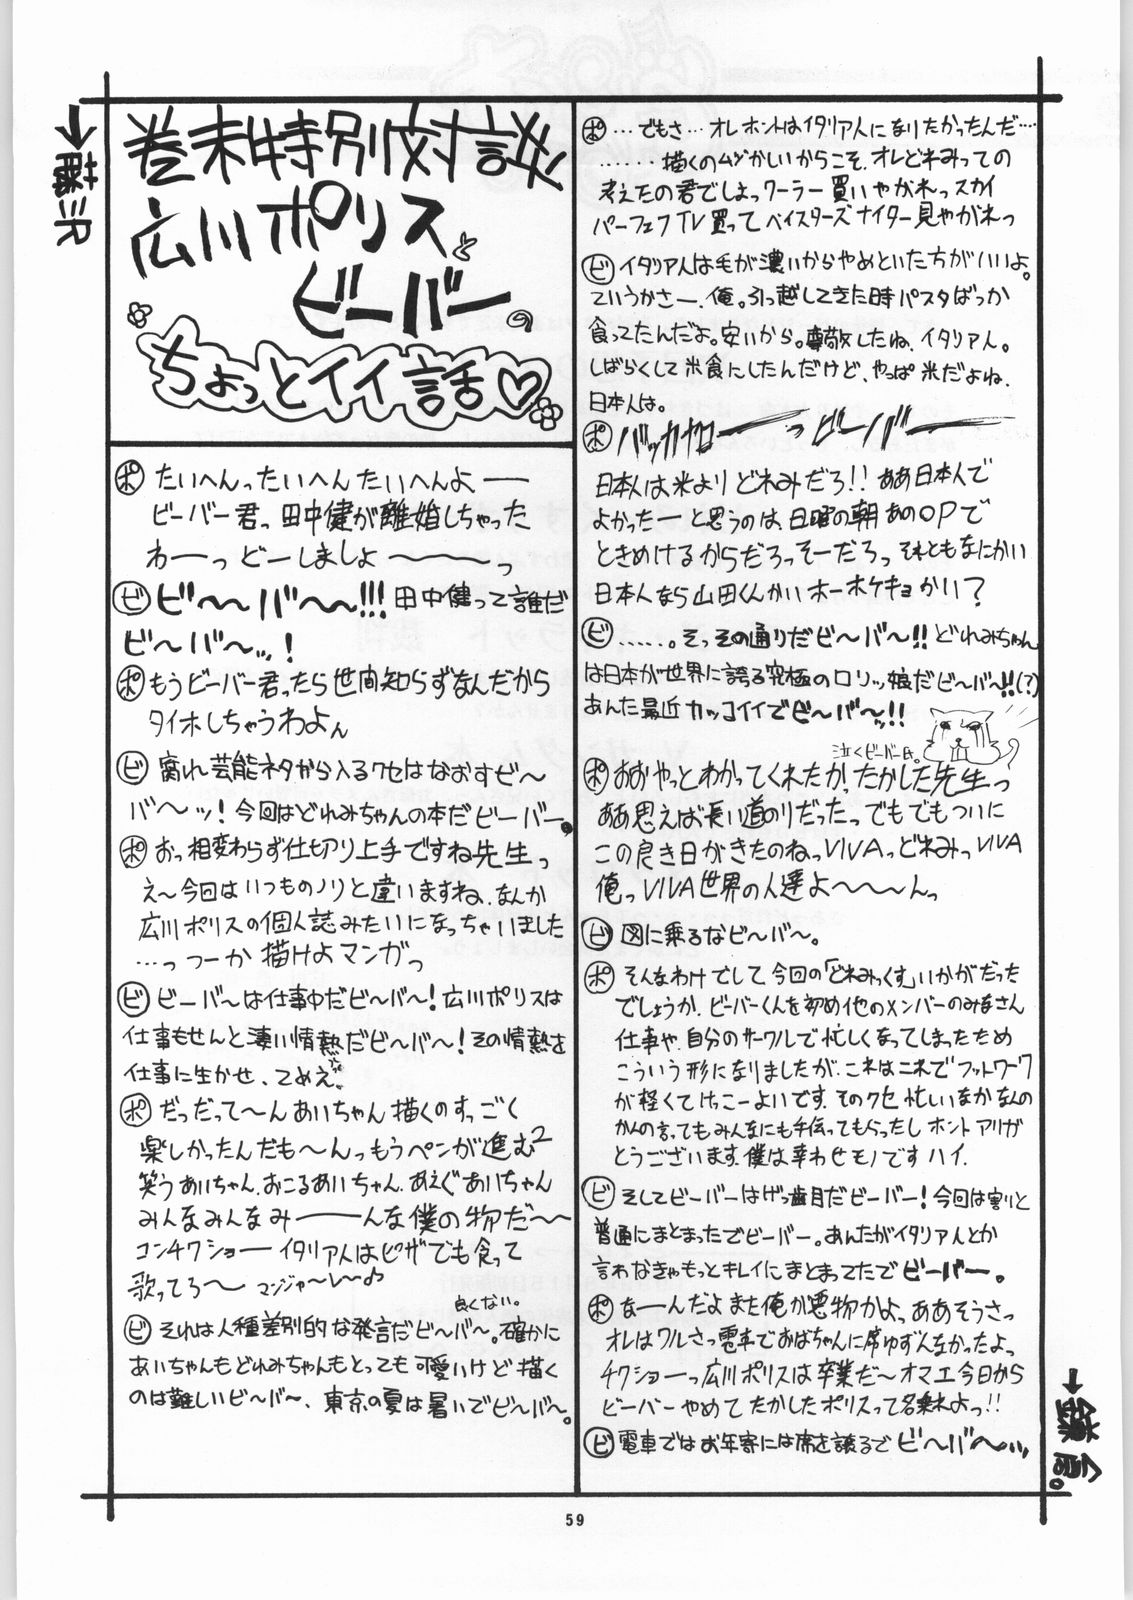 巻末特別対談!
広川ポリスと
ビーバーの
ちょっとイイ話♡
ポ たいへんったいへんたいへんよー
ビーバー君っ田中健が離婚しちゃった
わーっどーしましょ〜〜〜っ
ビ ビ〜バ〜!!!田中健って誰だ
ビ〜バ〜ッ!
ポ もうビーバー君ったら世間知らずなんだから
タイホしちゃうわよん
ビ 腐れ芸能ネタから入るクセはなおすビ〜
バ〜ッ!今回はどれみちゃんの本だビーバー。
ポ おっ相変わらず仕切り上手ですね先生っ
え〜今回はいつものノリと違いますね、なんか
広川ポリスの個人誌みたいになっちゃいました
…っつーか描けよマンガっ
ビ ビーバ〜は仕事中だビ〜バ〜!広川ポリスは
仕事もせんと凄い情熱だビ〜バ〜!その情熱を
仕事に生かせ、てめえ。
ポ だっだって〜んあいちゃん描くのすっごく
楽しかったんだも〜んっもうペンが進む2
笑うあいちゃん、おこるあいちゃん、あえぐあいちゃん
みんなみんなみーーんな僕の物だ〜〜
コンチクショーイタリア人はピザでも食って
歌ってろ〜 マンジャ〜レ〜♪
良くない。
ビ それは人種差別的な発言だビ〜バ〜。確かに
あいちゃんもどれみちゃんもとっても可愛いけど描く
のは難しいビ〜バ〜、東京の夏は暑いでビ〜バ〜。
ポ …でもさ…オレホントはイタリア人になりたかったんだ……
………描くのムズかしいからこそ、オレどれみっての
考えたの君でしょっクーラー買いやがれっスカイ
パーフェフTV買ってベイスターズナイター見やがれっ
ビ イタリア人は毛が濃いからやめといた方がいいよ。
ていうかさー、俺。引っ越してきた時パスタばっか
食ってたんだよ。安いから。尊敬したね、イタリアん。
しばらくして米食にしたんだけど、やっぱ米だよね、
日本人は。
ポ バッカヤローっビーバー
日本人は米よりどれみだろ!!ああ日本人で
よかったーと思うのは、日曜の朝あのOPで
ときめけるからだろっそーだろっそれともなにかい
日本人なら山田くんかいホーホケキョかい?
ビ ……。そっその通りだビ〜バ〜!!どれみちゃん
は日本が世界に誇る究極のロリッ娘だビ〜バ〜!!(?)
あんた最近カッコイイでビ〜バ〜ッ!!
泣くビーバー氏。
ポ おおやっとわかってくれたか、たかした先生っ
ああ思えば長い道のりだったっでもでもついに
この良き日がきたのねっVIVAっどれみっVIVA
俺っVIVA世界の人達よ〜〜〜んっ
ビ 図に乗るなビ〜バ〜。
ポ そんなわけでして今回の「どれみっくす」いかがだった
でしょうか、ビーバーくんを初め他のメンバーのみなさん
仕事や、自分のサークルで忙しくなってしまったため
こういう形になりましたが、これはこれでフットワーク
が軽くてけっこーよいです、そのクセ忙しいなかなんの
かんの言ってもみんなにも手伝ってもらったしホントアリガ
とうございます、僕は幸わせモノですハイ、
ビ そしてビーバーはげっ歯目だビーバー!今回は割りと
普通にまとまったでビーバー。あんたがイタリア人とか
言わなきゃもっとキレイにまとまってたでビーバー。
ポ なーんだよまた俺が悪物かよっああそうさっ
オレはワルさっ電車でおばちゃんに席ゆずんなかったよっ
チクショーっ広川ポリスは卒業だ〜オマエ今日から
ビーバーやめてたかしたポリスって名乗れよっ!!
ビ 電車ではお年寄には席を譲るでビ〜バ〜…
59